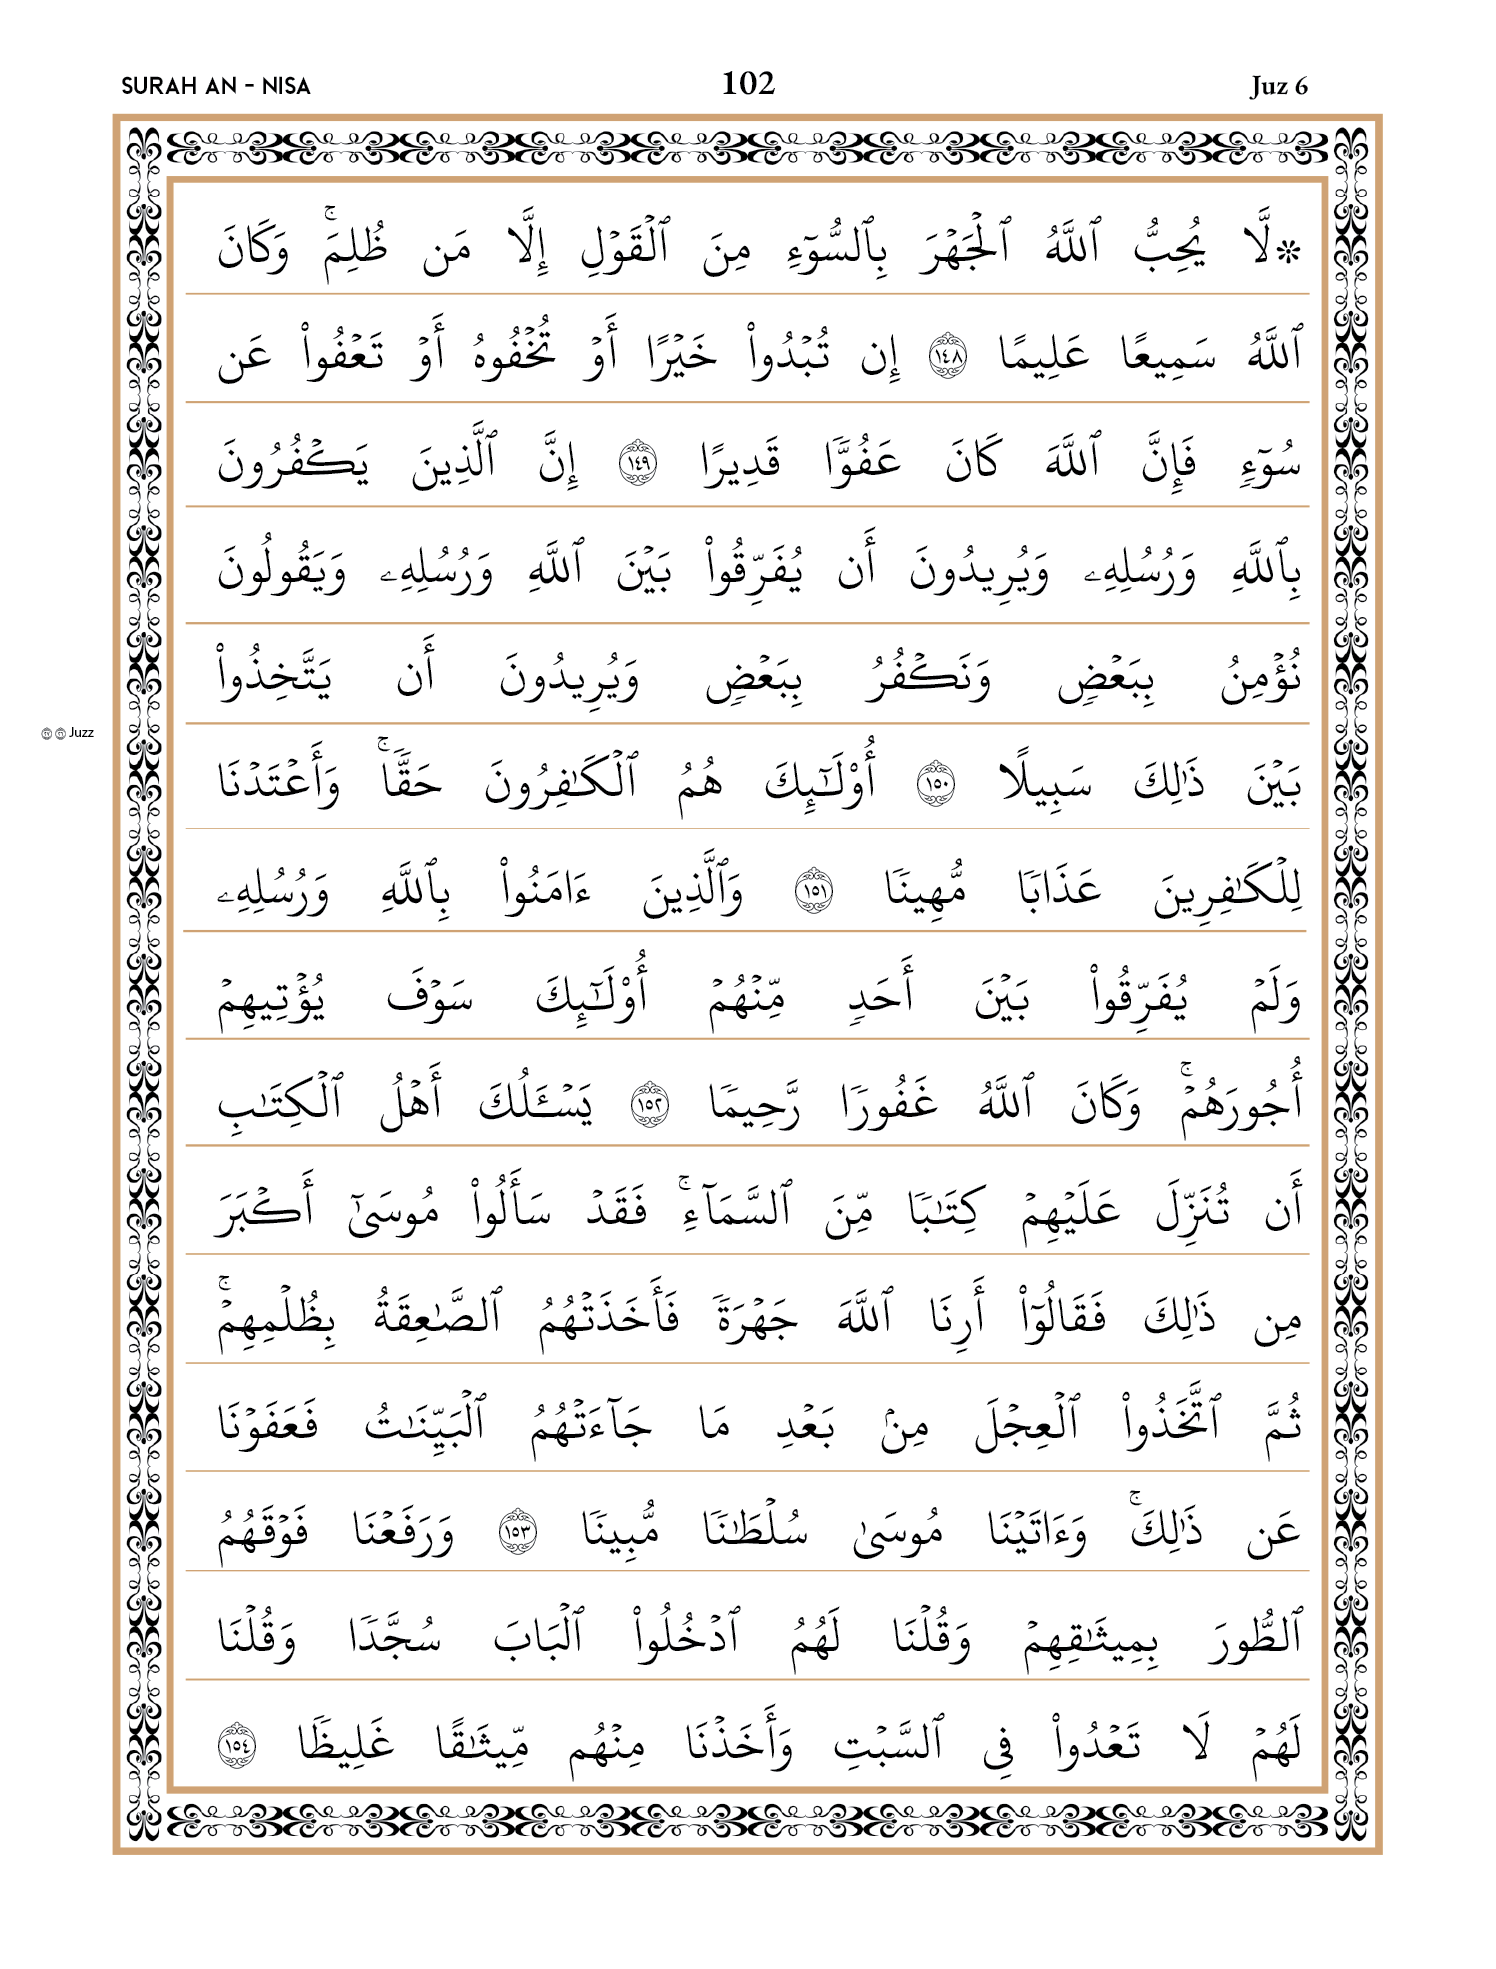 SURAH AN - NISA 102 Juz 6
۞لَّا يُحِبُّ ٱللَّهُ ٱلْجَهْرَ بِٱلسُّوٓءِ مِنَ ٱلْقَوْلِ إِلَّا مَن ظُلِمَ ۚ وَكَانَ
ٱللَّهُ سَمِيعًا عَلِيمًا ١٤٨ إِن تُبْدُوا۟ خَيْرًا أَوْ تُخْفُوهُ أَوْ تَعْفُوا۟ عَن
سُوٓءٍ فَإِنَّ ٱللَّهَ كَانَ عَفُوًّا قَدِيرًا ١٤٩ إِنَّ ٱلَّذِينَ يَكْفُرُونَ
بِٱللَّهِ وَرُسُلِهِۦ وَيُرِيدُونَ أَن يُفَرِّقُوا۟ بَيْنَ ٱللَّهِ وَرُسُلِهِۦ وَيَقُولُونَ
نُؤْمِنُ بِبَعْضٍ وَنَكْفُرُ بِبَعْضٍ وَيُرِيدُونَ أَن يَتَّخِذُوا۟
Juzz
بَيْنَ ذَٰلِكَ سَبِيلًا ١٥٠ أُو۟لَـٰٓئِكَ هُمُ ٱلْكَـٰفِرُونَ حَقًّا ۚ وَأَعْتَدْنَا
لِلْكَـٰفِرِينَ عَذَابًا مُّهِينًا ١٥١ وَٱلَّذِينَ ءَامَنُوا۟ بِٱللَّهِ وَرُسُلِهِۦ
وَلَمْ يُفَرِّقُوا۟ بَيْنَ أَحَدٍ مِّنْهُمْ أُو۟لَـٰٓئِكَ سَوْفَ يُؤْتِيهِمْ
أُجُورَهُمْ ۚ وَكَانَ ٱللَّهُ غَفُورًا رَّحِيمًا ١٥٢ يَسْـَٔلُكَ أَهْلُ ٱلْكِتَـٰبِ
أَن تُنَزِّلَ عَلَيْهِمْ كِتَـٰبًا مِّنَ ٱلسَّمَآءِ ۚ فَقَدْ سَأَلُوا۟ مُوسَىٰٓ أَكْبَرَ
مِن ذَٰلِكَ فَقَالُوٓا۟ أَرِنَا ٱللَّهَ جَهْرَةً فَأَخَذَتْهُمُ ٱلصَّـٰعِقَةُ بِظُلْمِهِمْ ۚ
ثُمَّ ٱتَّخَذُوا۟ ٱلْعِجْلَ مِنۢ بَعْدِ مَا جَآءَتْهُمُ ٱلْبَيِّنَـٰتُ فَعَفَوْنَا
عَن ذَٰلِكَ ۚ وَءَاتَيْنَا مُوسَىٰ سُلْطَـٰنًا مُّبِينًا ١٥٣ وَرَفَعْنَا فَوْقَهُمُ
ٱلطُّورَ بِمِيثَـٰقِهِمْ وَقُلْنَا لَهُمُ ٱدْخُلُوا۟ ٱلْبَابَ سُجَّدًا وَقُلْنَا
لَهُمْ لَا تَعْدُوا۟ فِى ٱلسَّبْتِ وَأَخَذْنَا مِنْهُم مِّيثَـٰقًا غَلِيظًا ١٥٤